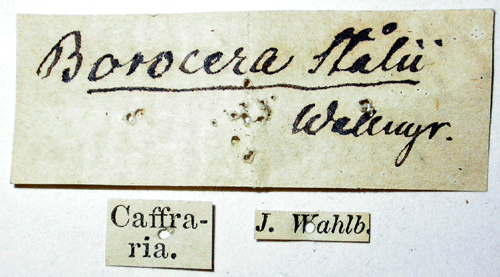 Borocera Stålii
Wallengr.
Caffra-
ria.
J. Wahlb.